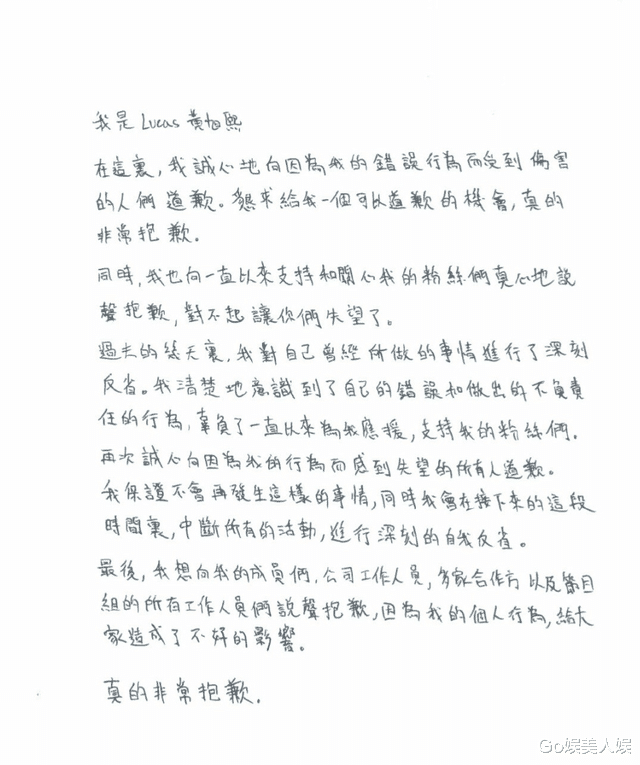 我是 Lucas 黃旭熙
在這裏,我誠心地向因為我的錯誤行為而受到傷害
的人們道歉。懇求給我一個可以道歉的機會,真的
非常抱歉.
同時,我也向一直以來支持和關心我的粉絲們真心地說
聲抱歉,對不起讓你們失望了。
過去的幾天裏,我對自己曾經所做的事情進行了深刻
反省。我清楚地意識到了自己的錯誤和做出的不負責
任的行為,辜負了一直以來為我應援,支持我的粉絲們.
再次誠心向因為我的行為而感到失望的所有人道歉。
我保證不會再發生這樣的事情,同時我會在接下來的這段
時間裏,中斷所有的活動,進行深刻的自我反省。
最後,我想向我的成員們,公司工作人員,多家合作方以及節目
組的所有工作人員們說聲抱歉,因為我的個人行為,給大
家造成了不好的影響。
真的非常抱歉.
Go娱美人娱